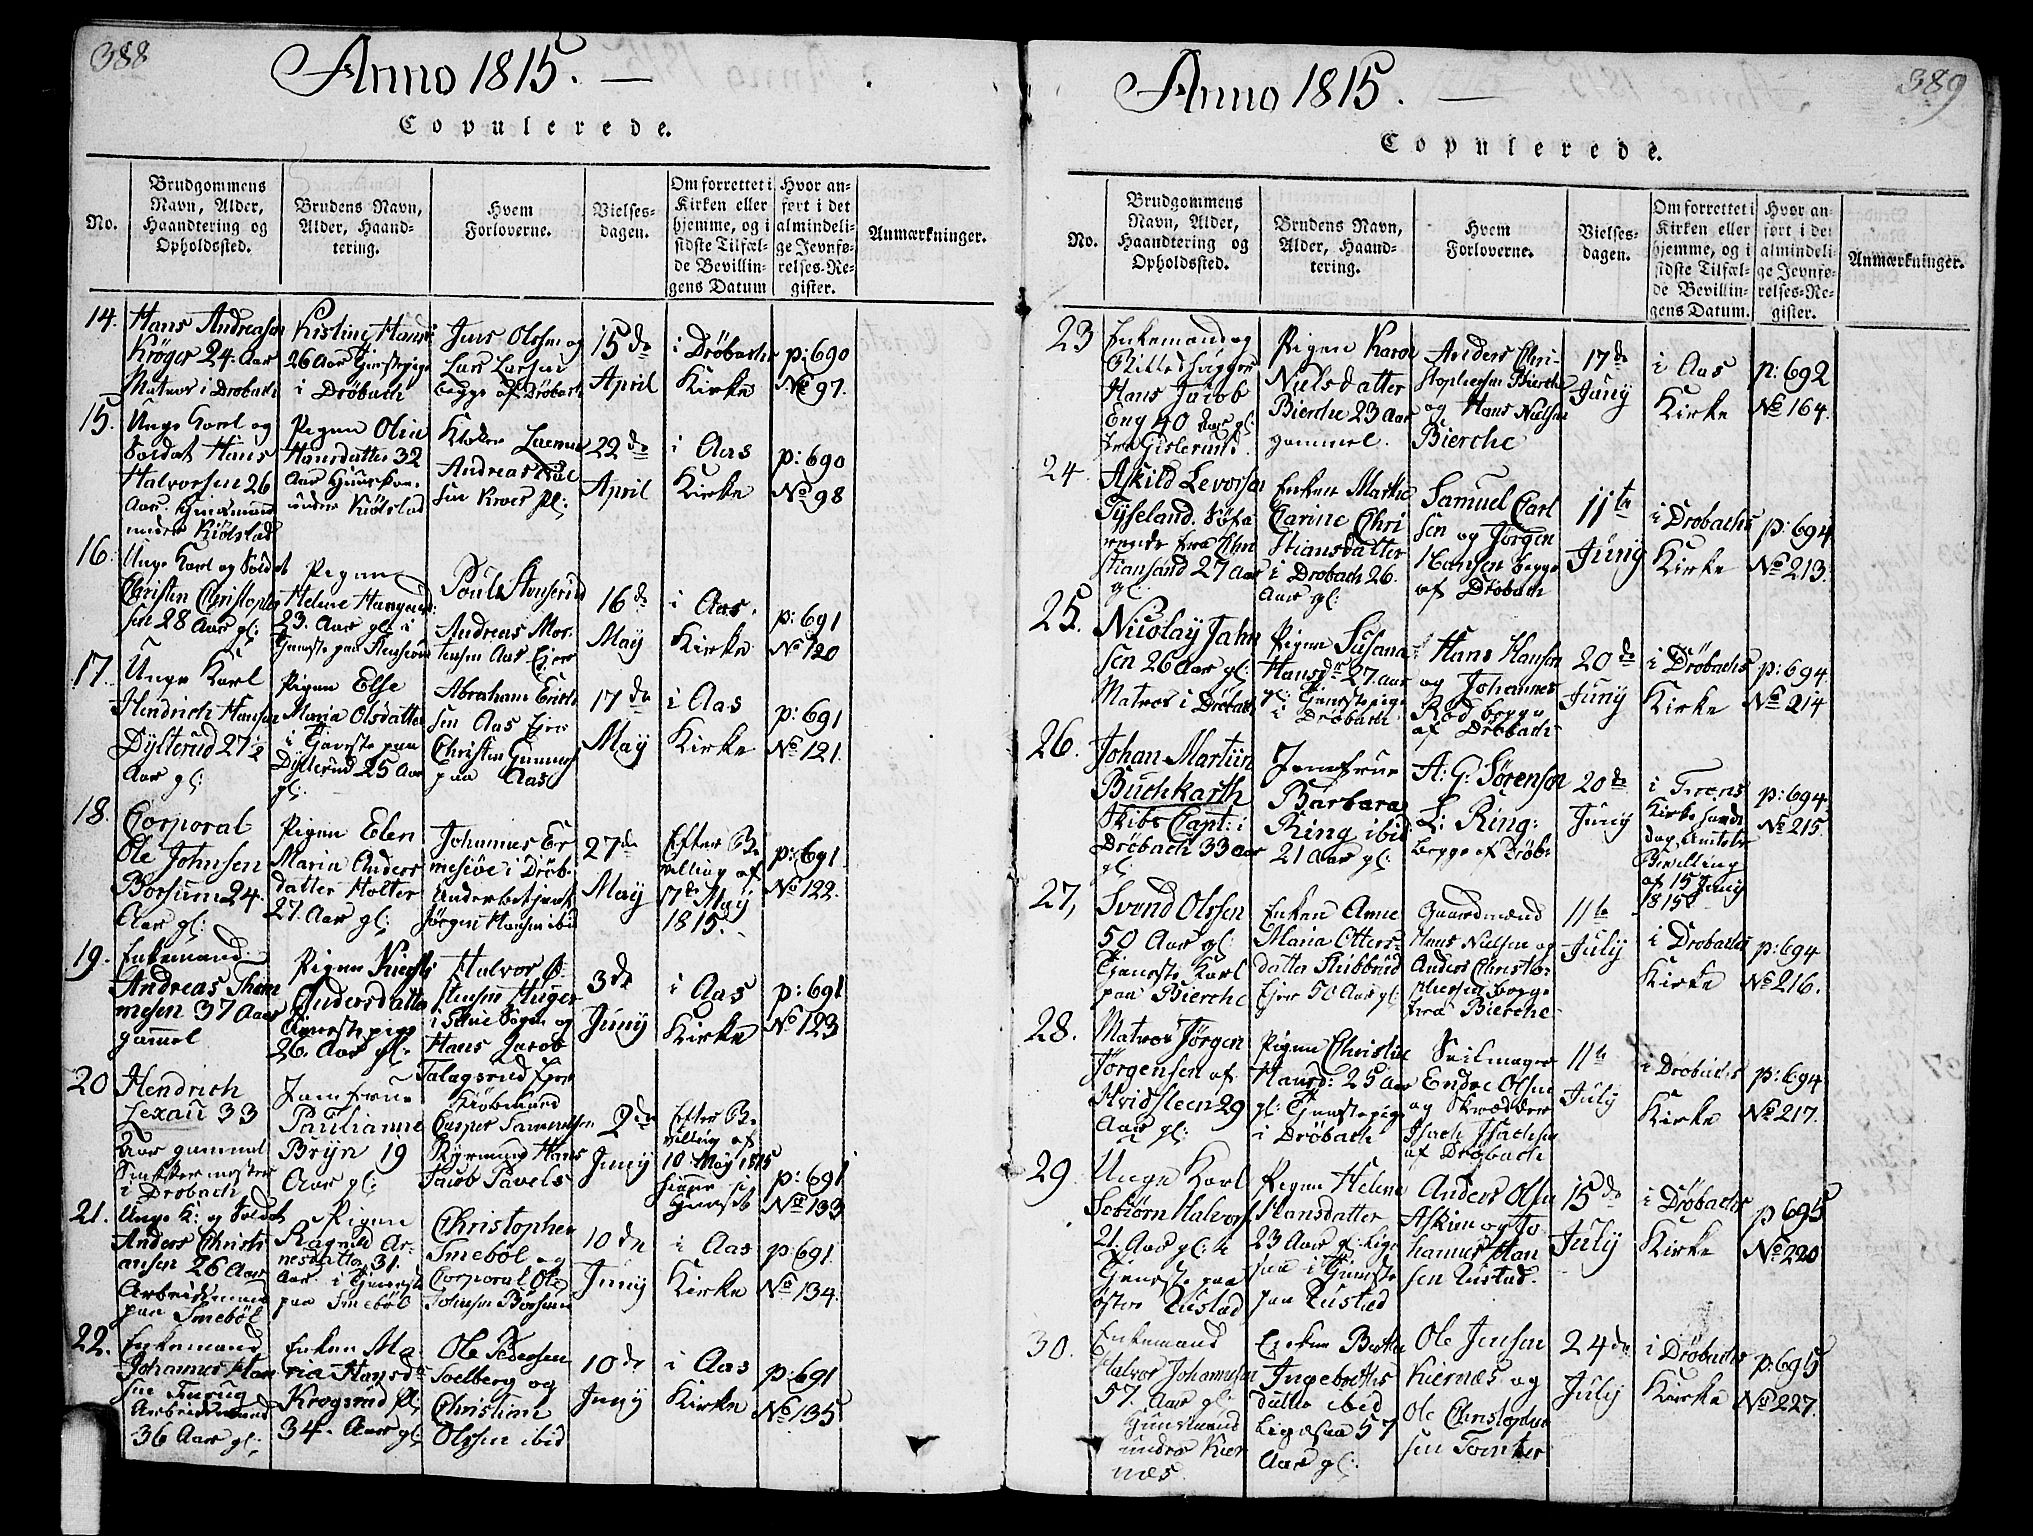 388
Anno 1815. —
Copulerede.
No.
Brudgommens
Navn, Alder,
Haandtering og
Opholdssted.
Brudens Navn,
Alder, Haand-
tering.
Hvem
Forloverne.
Vielses-
dagen.
Om forrettet i
Kirken eller
hjemme, og i
sidste Tilfæl-
de Bevillin-
gens Datum
Hvor an-
ført i det
almindeli-
ge Jevnfø-
relses-Re-
gister.
Anmærkninger.
14.
Hans Andreasen
Krøger 24. Aar
Matros i Drøbach
Kistine Hans
26 Aar Tienstepige
i Drøbach
Jens Olssen og
Lars Larsen
begge af Drøbach
15 de
April
i Drøbachs
Kirke
p: 690
No 97.
15.
Unge Karl og
Soldat Hans
Halvorsen 26
Aar. Huusmand
under Kiølstad
Pigen Olia
Hansdatter 32
Aar
under Kiølstad
Andreas
sen Kroer
22 de
April
i Aas
Kirke
p: 690
No 98
16.
Unge Karl og Soldat
Christen Christopher
sen 28 Aar gl:
Pigen
Helene
23. Aar gl: i
Tjeneste paa Stenserud
Poul Stenserud
Andreas Mor-
tensen Aas Ejer
16 de
May
i Aas.
Kirke
p: 691
No 120
17.
Unge Karl
Hendrich Hansen
Dysterud 27 1/2
Aar gl:
Pigen Else
Maria Olsdatter
i Tjeneste paa
Dysterud 25 Aar
gl:
Abraham Erich
sen Aas Ejer
Christen Gunners
paa Aas
17 de
May
i Aas
Kirke
p: 691
No 121.
18.
Corporal
Ole Johnsen
Borsum 24.
Aar gl:
Pigen Elen
Maria Anders
datter Holter
27. Aar gl:
Johannes Er
mesiøe i Drøb-
Underbetjent
Jørgen Hansen ibid
27 de
May
Efter Be
villing af
17 de May
1815.
p: 691.
No 122.
19.
Enkemand
Andreas Thom
mesen 37 Aar
gammel
Pigen
Andersdatter
Tjenestepige
26. Aar gl:
Halvor
stensen Huger
i
Hans Jacob
Talagsrud Ejer
3 de
Juny
i Aas
Kirke
p: 691
No 123
20
Hendrich
Lexau 33
Aar gammel
Snekkermester
i Drøbach
Jomfrue
Paulianne
Bryn 19
Aar gl:
Kiøbmand
Casper
Hans
Jacob Pavels
2 de
Juny
Efter Be
villing af
10 May 1815
hjemme i
Huuset
p: 691
No 133
21.
Unge K: og Soldat
Anders Christi
ansen 26 Aar
Arbeidsmand
paa Smebøl
Pigen
Ragnild Ar-
nesdatter 31.
Aar i Tjeneste
paa Smebøl
Christopher
Smebøl og
Corporal Ole
Johnsen Borsum
10 de
Juny
i Aas
Kirke
p: 691.
No 134.
22.
Enkemand
Johannes Han
sen
Arbeidsmand
36 Aar gl:
Enken Ma-
ria Hansd.
Krogsrud
34. Aar gl:
Ole Pedersen
Solberg og
Christen
Olssen ibid
10 de
Juny
i Aas
Kirke
p: 691
No 135
389
Anno 1815. —
Copulerede.
No.
Brudgommens
Navn, Alder,
Haandtering og
Opholdssted.
Brudens Navn,
Alder, Haand-
tering.
Hvem
Forloverne.
Vielses-
dagen.
Om forrettet i
Kirken eller
hjemme, og i
sidste Tilfæl-
de Bevillin-
gens Datum.
Hvor an-
ført i det
almindeli-
ge Jevnfø-
relses-Re-
gister.
Anmærkninger.
23
Enkemand og
Billedhugger
Hans Jacob
Eng 40 Aar gl:
fra Gislerud.
Pigen Karen
Nielsdatter
Bierche 23 Aar
gammel.
Anders Chri-
stophersen Bierche
og Hans Nielsen
Bierche
17 de
Juny
i Aas
Kirke
p: 692
No 164.
24.
Askild Levorsen
Tyseland. Søfa
rende fra Chri
stiansand 27 Aar
gl:
Enken Marthe
Carine Chri
stiansdatter
i Drøbach 26.
Aar gl:
Samuel Carl
sen og Jørgen
Hansen begge
af Drøbach
11 te
Juny
i Drøbachs
Kirke
p: 694
No 213.
25.
Nicolay Jahn
sen 26 Aar gl:
Matros i Drøbach
Pigen Susana
Hansdr 27. Aar
gl: Tjenstepige
i Drøbach
Hans Hansen
og Johannes
Rød begge
af Drøbach
20 de
Juny
i Drøbachs
Kirke
p: 694.
No 214
26.
Johan Martiin
Buchkarth
Skibs Capt: i
Drøbach 33 Aar
gl:
Jomfrue
Barbara
Ring ibid:
21 Aar gl:
A: G: Sørensen
L: Ring:
begge af Drøb-
20 de
Juny
i Frøens
Kirke
Bevilling
af 15 Juny
1815
p: 694.
No 215.
27,
Svend Olssen
50 Aar gl:
Tjeneste Karl
paa Bierche
Enken Anne
Maria Otters-
datter Stubberud
Ejer 50 Aar gl:
Gaardmænd
Hans Nielsen og
Anders Christo-
phersen begge
fra Bierche
11 te
July
i Drøbachs
Kirke
p: 694
No 216.
28.
Matros Jørgen
Jørgensen af
Hvidsteen 29
Aar gl:
Pigen Christie
Hansd: 25 Aar
gl: Tjenstepige
i Drøbach
Seilmager
Endre Olsen
og Skrædder
Isach Isachsen
af Drøbach
11 te
July
i Drøbachs
Kirke
p: 694
No 217.
29.
Unge Karl
Sebiørn Halvors
21. Aar gl: i
Tjeneste paa
østre Rustad
Pigen Helene
Hansdatter
23 Aar gl: lige
saa i Tjeneste
paa Rustad
Anders Olsen
Askim og Jo-
hannes Han
sen Rustad.
15 de
July
i Drøbachs
Kirke
p 695
No 220
30.
Enkemand
Halvor Johannesen
57. Aar gl:
Huusmand
under Kier
næs.
Enken Berthe
Ingebreths
datter ibid
Ligesaa 57
Aar gl:
Ole Jensen
Kiernæs og
Ole Christopher
sen Tomter
24 de
July
i Drøbachs
Kirke
p: 695
No 227.